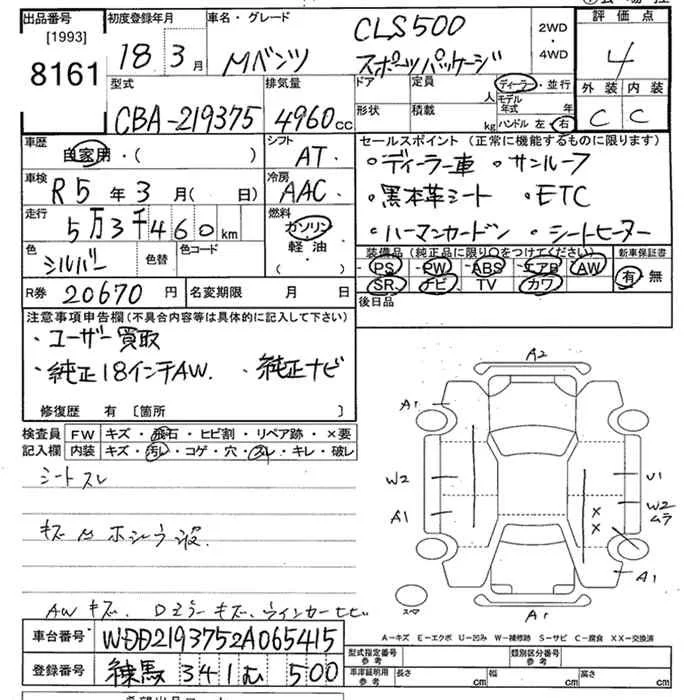 出品番号
[1993]
8161
初度登録年月
18年 3月
車名・グレード
Mベンツ
CLS500
スポーツパッケージ
2WD
・
4WD
評価点
4
外装 内装
C C
型式
CBA-219375
排気量
4960cc
ドア
形状
定員
人
積載
kg
ディーラー・並行
モデル年式 年
ハンドル 左・右
車歴
自家用・( )
シフト
AT
車検
R5年3月( 日)
冷房
AAC
走行
5万3千460km
燃料
ガソリン・軽油・( )
色
シルバー
色替
色コード
R券 20670円
名変期限 月 日
セールスポイント (正常に機能するものに限ります)
・ディーラー車 ・サンルーフ
・黒本革シート ・ETC
・ハーマンカードン ・シートヒーター
装備品(純正品に限り○をつけてください)
PS PW ABS エアB AW
SR ナビ TV カワ
新車保証書
有・無
後日品
注意事項申告欄(不具合内容等は具体的に記入して下さい)
・ユーザー買取
・純正18インチAW. ・純正ナビ
修復歴 有 〔箇所 〕
検査員記入欄
FW キズ・飛石・ヒビ割・リペア跡・×要
内装 キズ・汚レ・コゲ・穴・スレ・キレ・破レ
シートスレ
AWキズ. Dミラーキズ.ウインカーヒビ
A2
A1
W2
A1
U1
W2
ムラ
A1
A1
スペア
A―キズ E―エクボ U―凹み W―補修跡 S―サビ C―腐食 XX―交換済
車台番号 WDD2193752A065415
登録番号 練馬 341 む 500
型式指定番号
参考
類別区分番号
参考
車庫証明用
参考
長さ cm 幅 cm 高さ cm